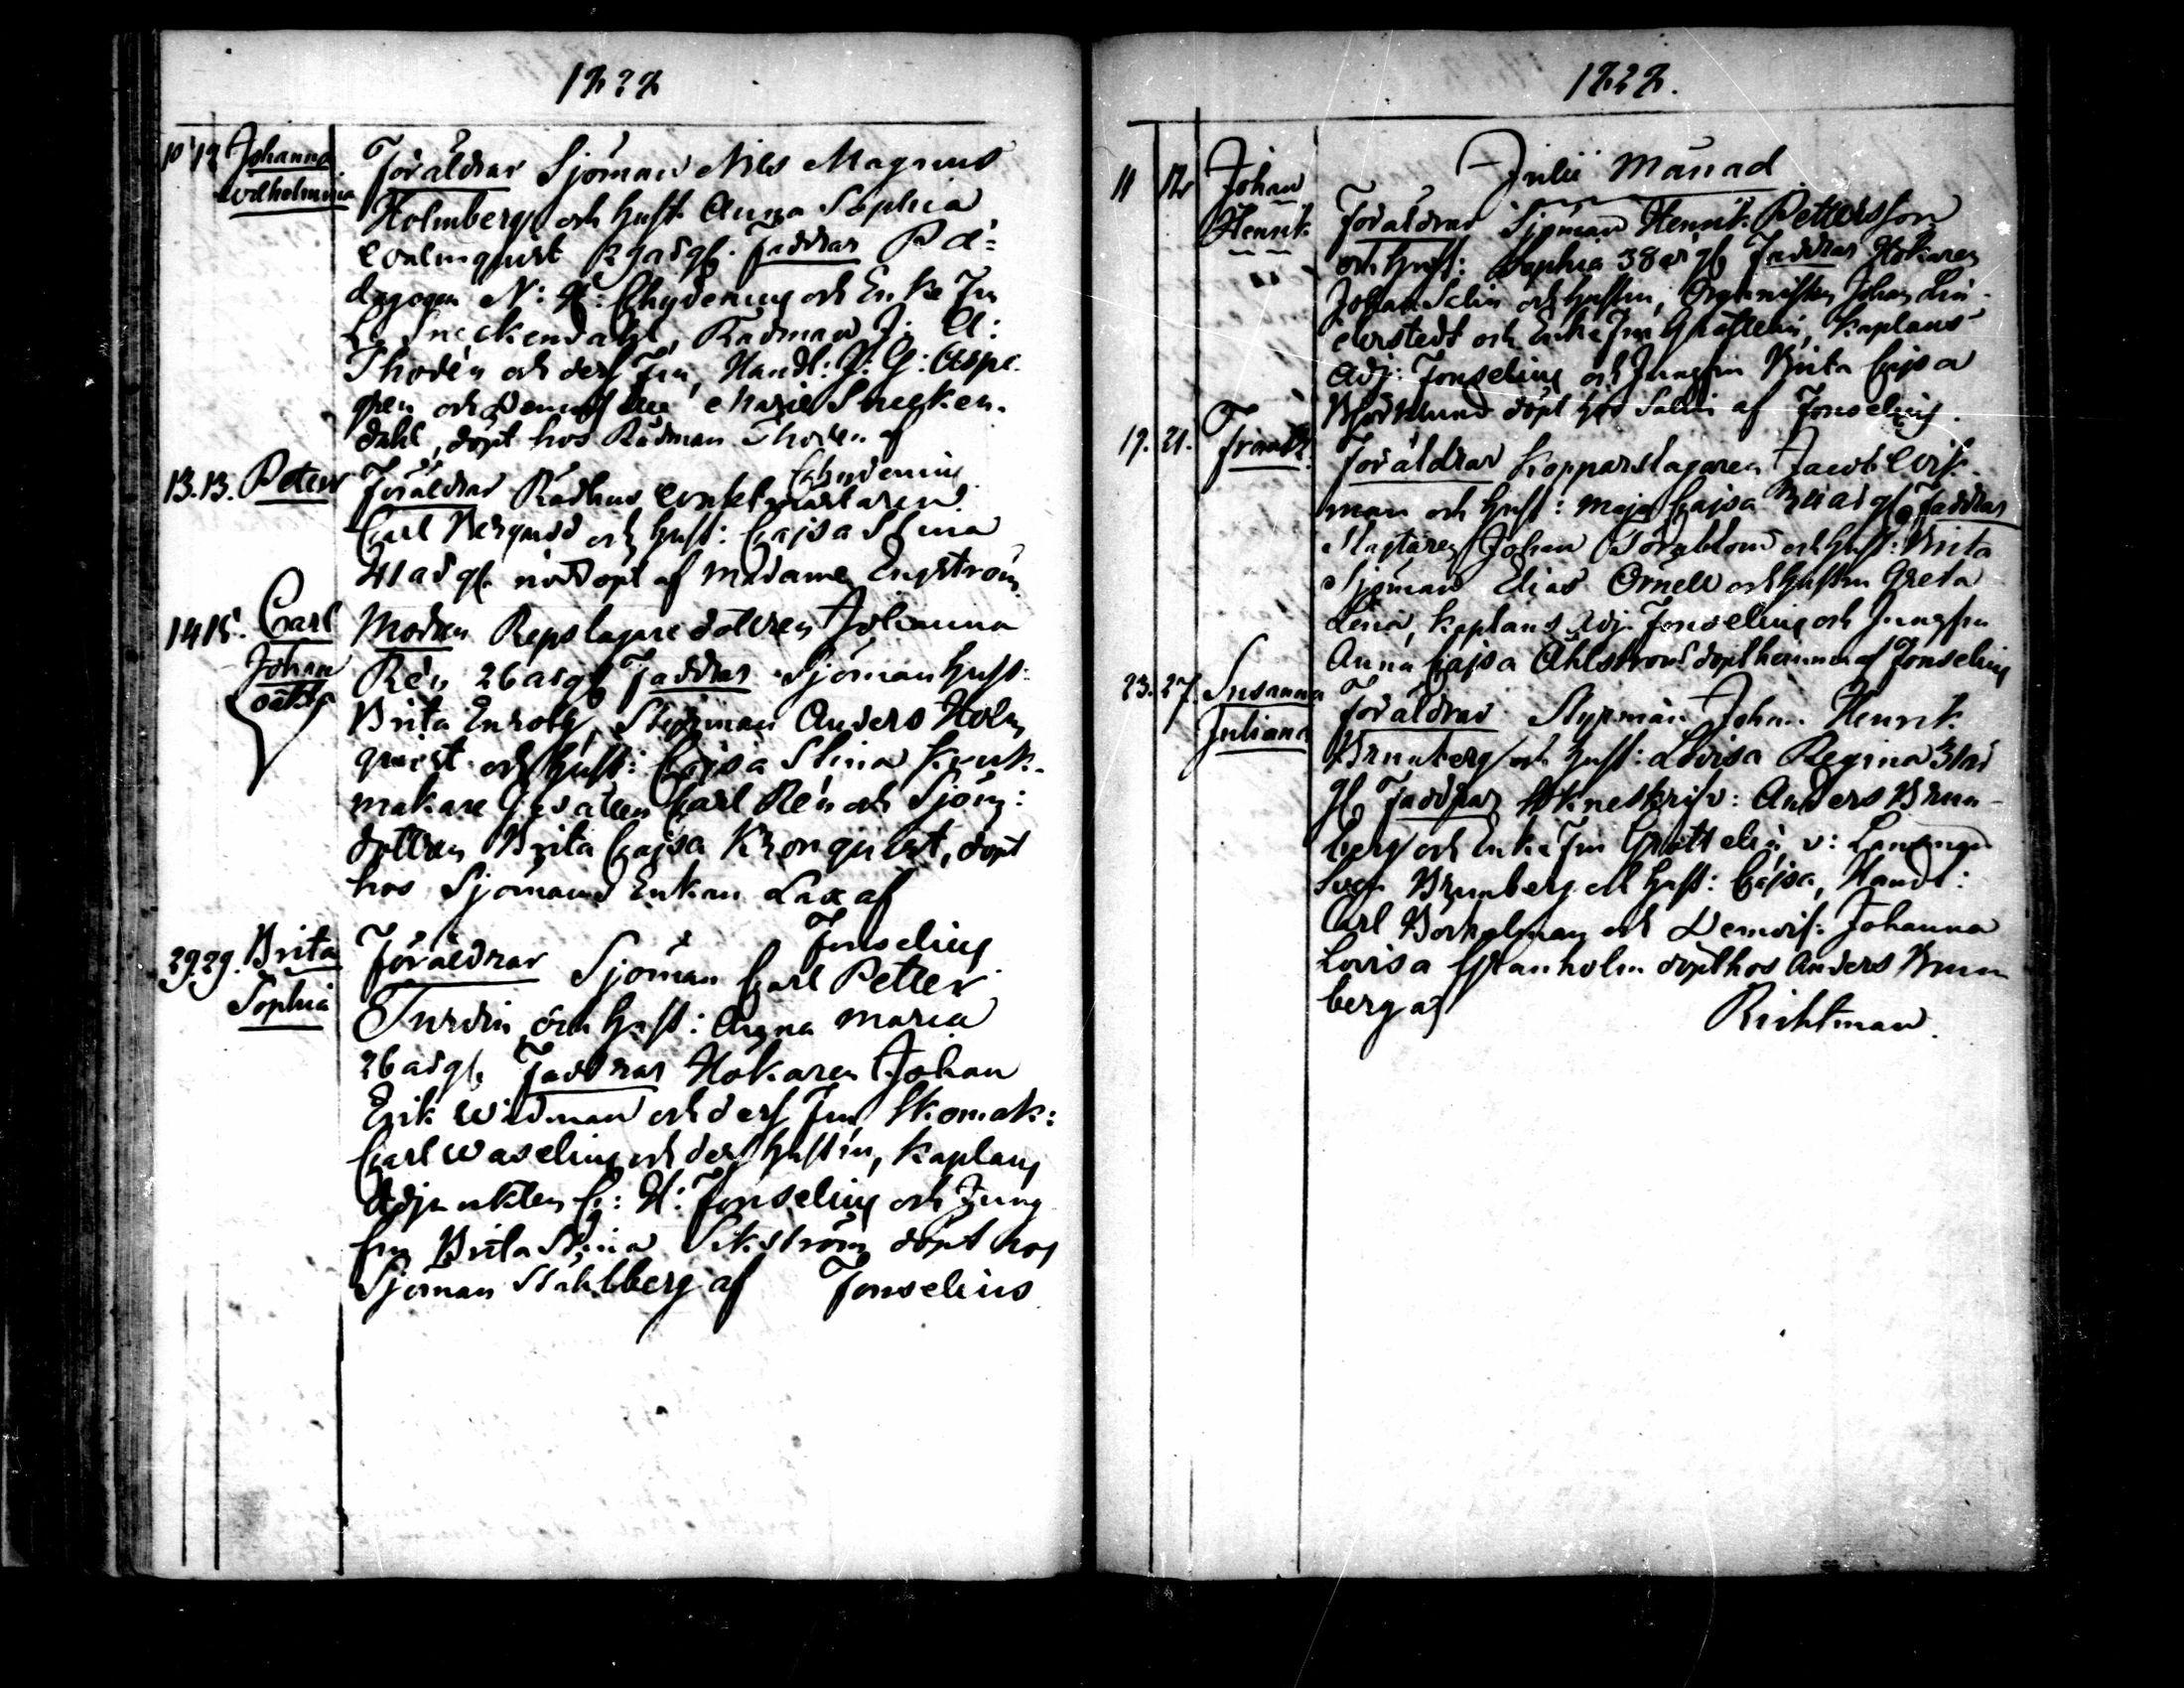 1828
10 12 Johanna Föräldrar Sjöman Nils Magnus
Wilhelmina Holmberg och hust. Anna Sophia
Malmquist åhrgl. Faddrar Pä=
dagogen N: H: Chydenius och Enke Fru
Sneckendahl, Rådman J: A:
Thodén och dess Fru, Handl: J: G: Aspe-
gren och Demois. Marie Snecken-
dahl, döpt hos Rådman Thodén af
Chydenius
13. 13. Petter Föräldrar Rådhus Vaktmästaren
Carl Bergudd och hust: Cajsa Stina
41 årgl. nöddöpt af Madame Engström
14 15. Carl Modren Repslagare dottren Johanna
Johan Rén 26 årgl. Faddrar Sjöman hust:
oäkta Brita Enroth, Sjöman Anders Holm
quist och hust: Cajsa Stina Kruk-
makare Gesällen Carl Rén och Sjöm:
dottren Brita Cajsa Kronqvist, döpt
hos Sjömans Enkan Lax af
Jonselius
29 29. Brita Föräldrar Sjöman Carl Petter
Sophia Turdin och hust: Anna Maria
26 årgl. Faddrar Hökaren Johan
Erik Widman och dess Fru, Skomak:
Carl Waselius och dess hustru, Kaplans
Adjunkten C: H: Jonselius och Jung
fru Brita Stina Sikström döpt hos
Sjöman Ståhlberg af Jonselius
1828.
Julii Månad
11 12 Johan Föräldrar Sjöman Henrik Pettersson
Henrik och hust: Sophia 38 årgl. Faddrar Hökaren
Johan Selin och hustru, Organisten Johan Lin-
derstedt och Enke Fru Ghöstelin, Kaplans
Adj: Jonselius och Jungfru Brita Cajsa
Björklund döpt hos Selin af Jonselius.
19. 21. Frans Föräldrar Kopparslagaren Jacob Wik
man och hust: Maja Cajsa årgl. Faddrar
Slagtaren Johan Törnblom och hust: Brita
Sjöman Elias Ornell och hustru Greta
Lena, Kaplans Adj: Jonselius och Jungfru
Anna Cajsa Åhlström döpt hemma af Jonselius
23. 27. Susanna Föräldrar Styrman Johan Henrik
Juliana Brunberg och hust: Lovisa Regina 31 år
gl. Faddrar Anders Brun-
berg och Enke Fru v:
Sven Brunberg och hust: Cajsa, Handl:
Carl Borholman och Demois: Johanna
Lovisa Granholm döpt hos Anders Brun
berg af Richtman.